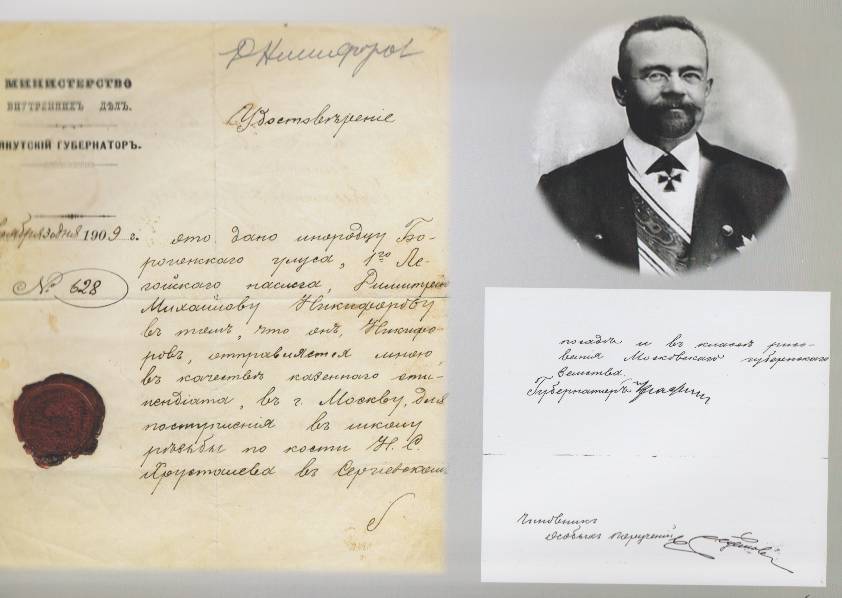 Д Никифоров
МИНИСТЕРСТВО
ВНУТРЕННИХЪ ДѢЛЪ.
ЯКУТСКІЙ ГУБЕРНАТОРЪ.
Удостовѣреніе
1909 г.
№ 628
дано инородцу Бо-
рогонскаго улуса, 1го Ле-
гойскаго наслега, Димитрію
Михайлову Никифорову
въ томъ, что онъ, Никифо-
ровъ, отправляется мною,
въ качествѣ казеннаго сти-
пендіата, въ г. Москву, для
поступленія въ школу
рѣзьбы по кости Н. С.
Хрусталева въ Сергіевскомъ
посадѣ и въ классъ рисо-
ванія Московскаго губернскаго
Земства.
Губернаторъ
Чиновникъ
особыхъ порученій